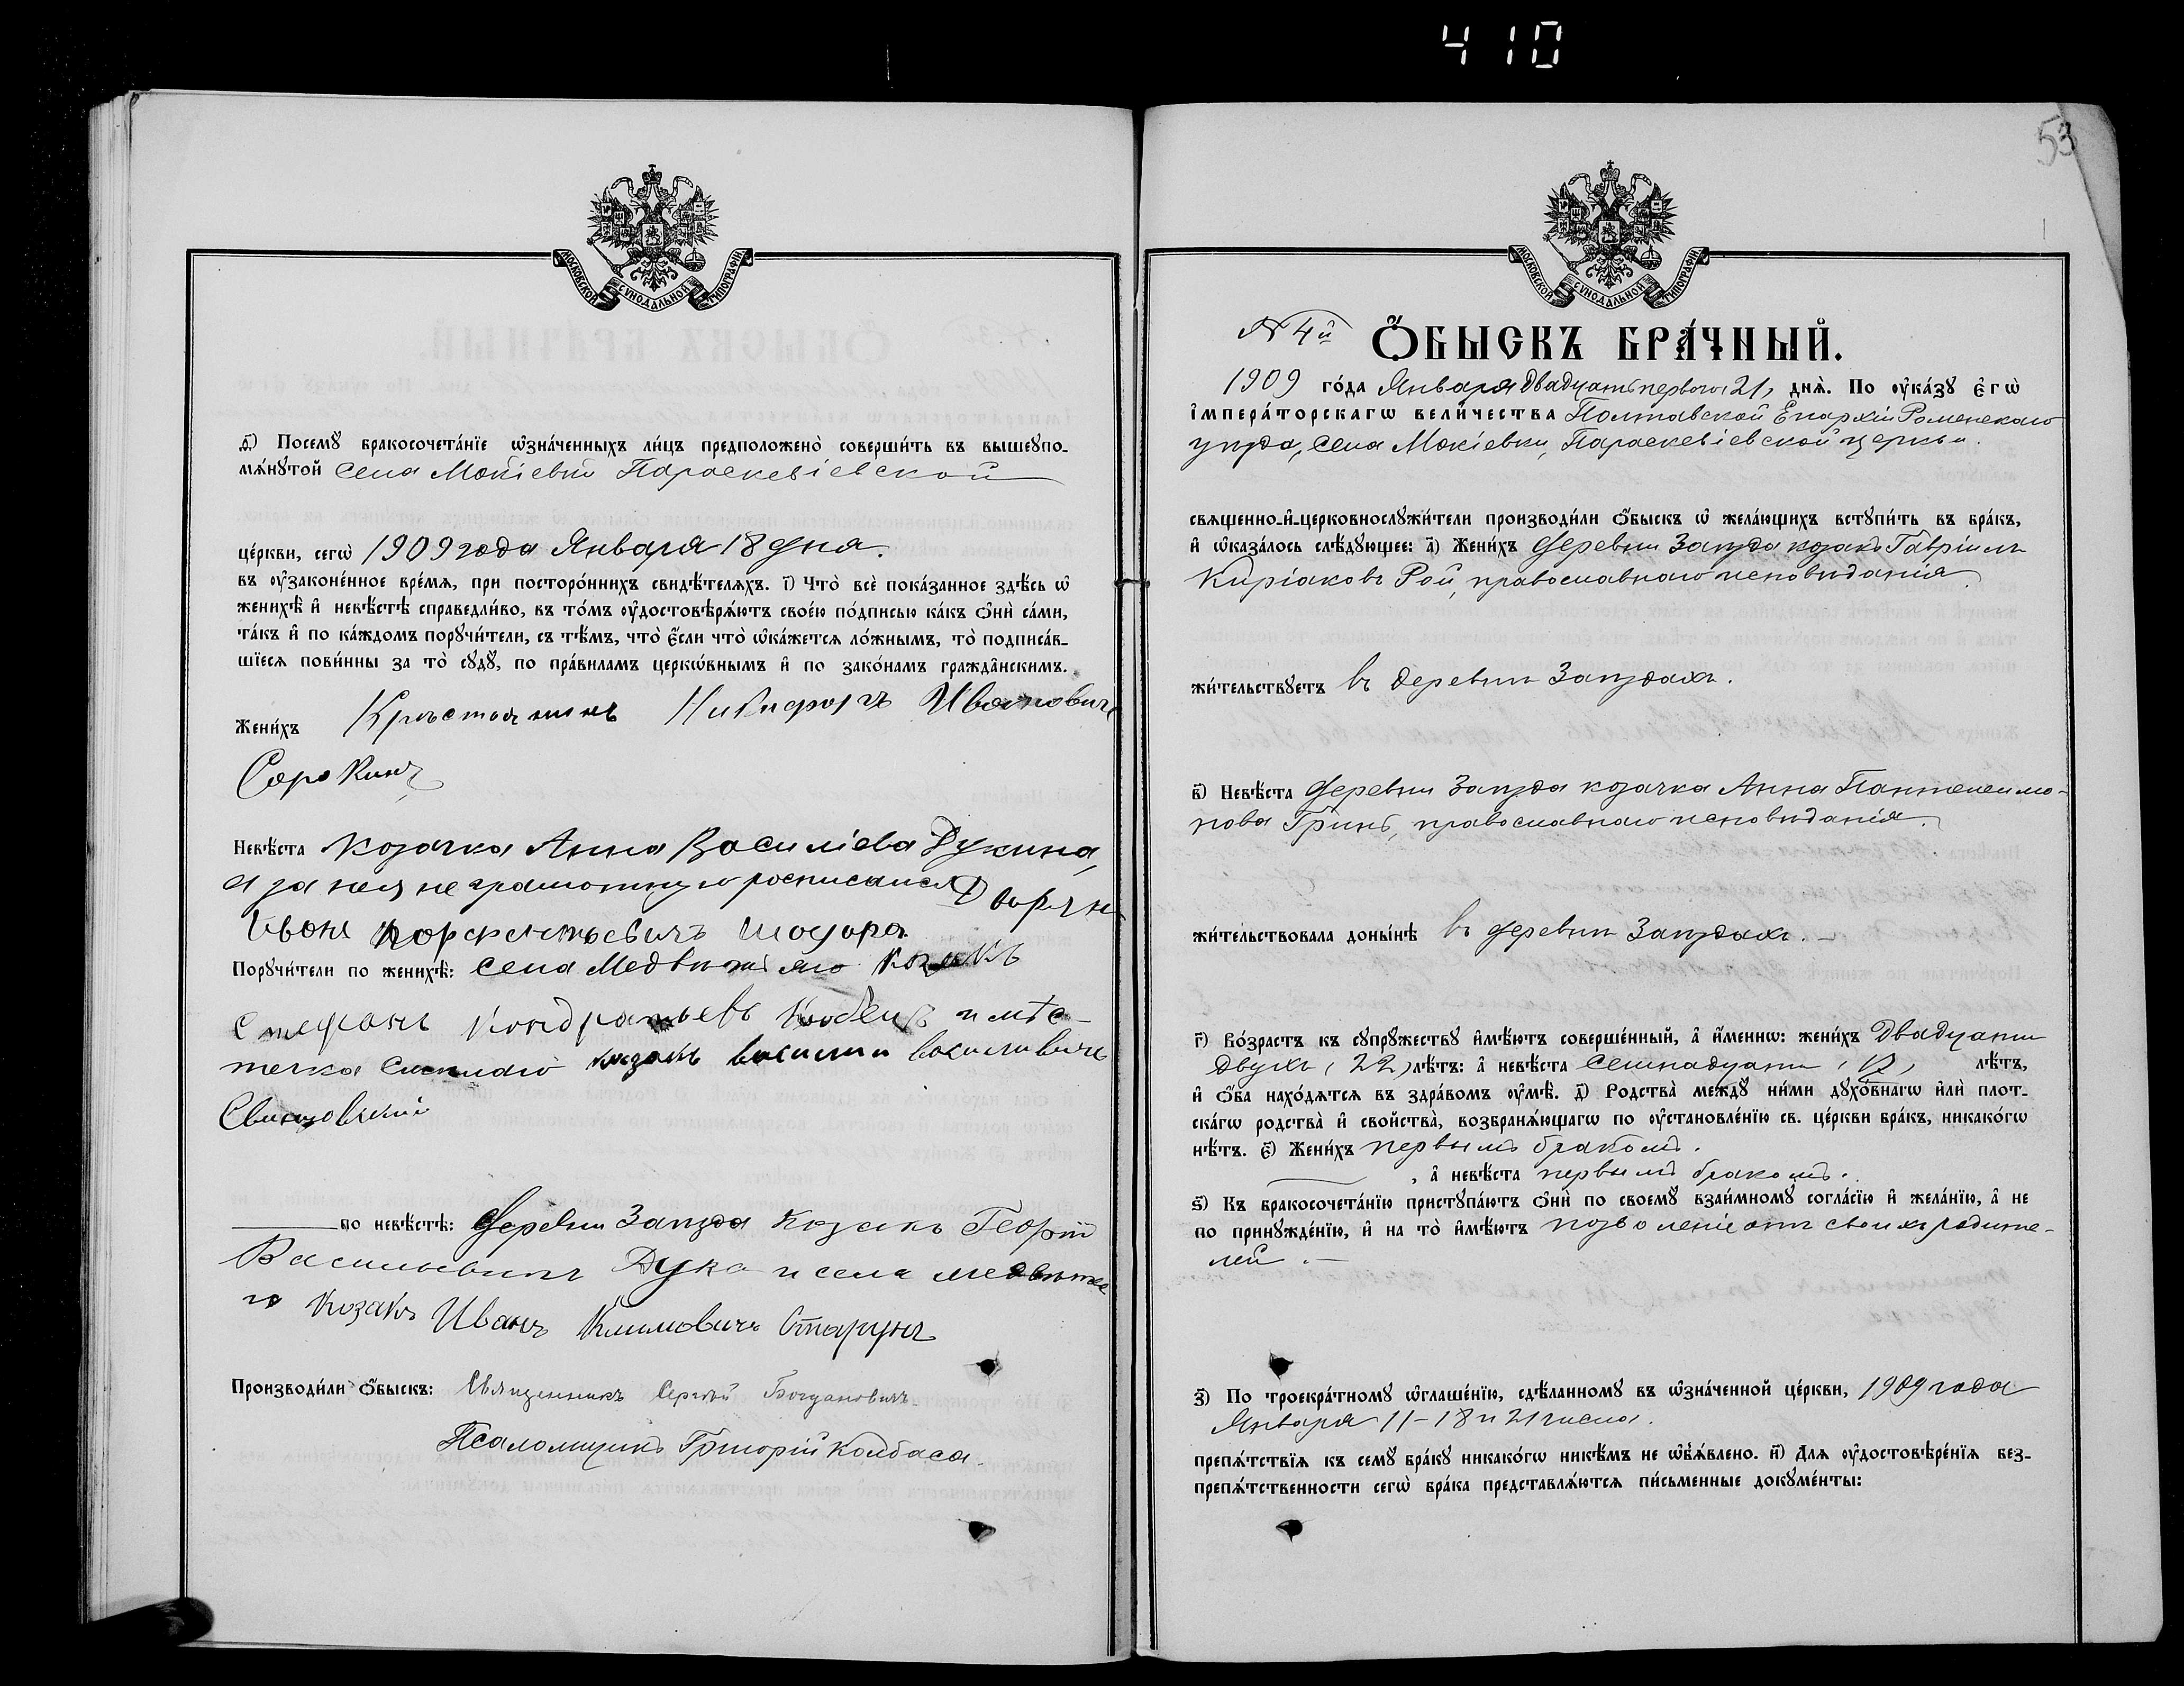 410
МОСКОВСКОЙ СѴНОДАЛЬНОЙ ТИПОГРАФІИ
д҃) Посемꙋ бракосочета́нїе ѡ҆зна́ченныхъ ли́цъ предположено̀ соверши́ть въ вышеꙋпо-
мѧ́нꙋтой села Мокіевки Параскевіевской
це́ркви, сегѡ̀ 1909 года Января 18 дня.
въ ᲂу҆законе́нное вре́мѧ, при посторо́ннихъ свидѣ́телѧхъ. і҃) Что̀ всѐ пока́занное здѣ́сь ѡ҆
женихѣ̀ и҆ невѣ́стѣ справедли́во, въ то́мъ ᲂу҆достовѣрѧ́ютъ свое́ю по́дписью ка́къ ѻ҆нѝ са́ми,
та́къ и҆ по ка́ждомъ порꙋчи́тели, съ тѣ́мъ, что̀ є҆́сли что̀ ѡ҆ка́жетсѧ ло́жнымъ, то̀ подписа́в-
шїесѧ пови́нны за то̀ сꙋдꙋ̀, по пра́виламъ церкѡ́внымъ и҆ по зако́намъ гражда̂нскимъ.
Жени́хъ Крестьянинъ Никифоръ Ивановичъ
Сорокинъ
Невѣ́ста Козачка Анна Василіева Дукина,
а за нея неграмотную росписался Дворян
Іванъ
Порꙋчи́тели по женихѣ̀: села Медвѣжяго козакъ
Стефанъ Кондратьевъ и мѣс-
течка Смѣлаго козакъ василии василивичъ
по невѣ́стѣ: Деревни Заѣзда козакъ Георгій
Васильевичъ Дука и села медвѣже
го козакъ Иванъ Климовичъ Старунъ
Производи́ли ѻ҆́быскъ: Священникъ Сергѣй Богдановичъ
Псаломщикъ Григорій Колбаса.
53
МОСКОВСКОЙ СѴНОДАЛЬНОЙ ТИПОГРАФІИ
№ 4й Ѻ҆́БЫСКЪ БРА́ЧНЫЙ.
1909 го́да Января двадцать перваго 21, днѧ̀. По ᲂу҆ка́зꙋ є҆гѡ̀
і҆мпера́торскагѡ вели́чества Полтавской Епархіи Роменскаго
уѣзда, села Мокіевки, Параскевіевской церкви.
свѧщенно-и҆-церковнослꙋжи́тели производи́ли ѻ҆́быскъ ѡ҆ жела́ющихъ встꙋпи́ть въ бра́къ,
и҆ ѡ҆каза́лось слѣ́дꙋющее: а҃) Жени́хъ деревни Заѣзда козакъ Гавріилъ
Киріаковъ Рой, православнаго исповѣданія.
жи́тельствꙋетъ въ деревни Заѣздахъ.
в҃) Невѣ́ста деревни Заѣзда козачка Анна Пантелеимо-
нова Гринь, православнаго исповѣданія.
жи́тельствовала доны́нѣ въ деревни Заѣздахъ.
г҃) Во́зрастъ къ сꙋпрꙋжествꙋ и҆мѣ́ютъ соверше́нный, а҆ и҆́меннѡ: жени́хъ двадцати
двухъ (22) лѣ́тъ: а҆ невѣ́ста семнадцати (17) лѣ́тъ,
и҆ ѻ҆́ба нахо́дѧтсѧ въ здра́вомъ ᲂу҆мѣ̀. д҃) Родства̀ междꙋ̀ ни́ми дꙋхо́внагѡ и҆лѝ плот-
ска́гѡ родства̀ и҆ свойства̀, возбранѧ́ющагѡ по ᲂу҆становле́нїю св. це́ркви бра́къ, никако́гѡ
нѣ́тъ. є҃) Жени́хъ первымъ бракомъ.
, а҆ невѣ́ста первымъ бракомъ.
ѕ҃) Къ бракосочета́нїю пристꙋпа́ютъ ѻ҆нѝ по своемꙋ̀ взаи́мномꙋ согла́сїю и҆ жела́нїю, а҆ не
по принꙋжде́нїю, и҆ на то̀ и҆мѣ́ютъ позволеніе отъ своихъ родите-
лей.
з҃) По троекра́тномꙋ ѡ҆глаше́нїю, сдѣ́ланномꙋ въ ѡ҆зна́ченной це́ркви, 1909 года
Января 11–18 и 21 числа.
препѧ́тствїѧ къ семꙋ̀ бра́кꙋ никако́гѡ никѣ́мъ не ѡ҆б̾ѧ́влено. и҃) Длѧ ᲂу҆достовѣре́нїѧ без-
препѧ́тственности сегѡ̀ бра́ка представлѧ́ютсѧ пи́сьменные докꙋме́нты: